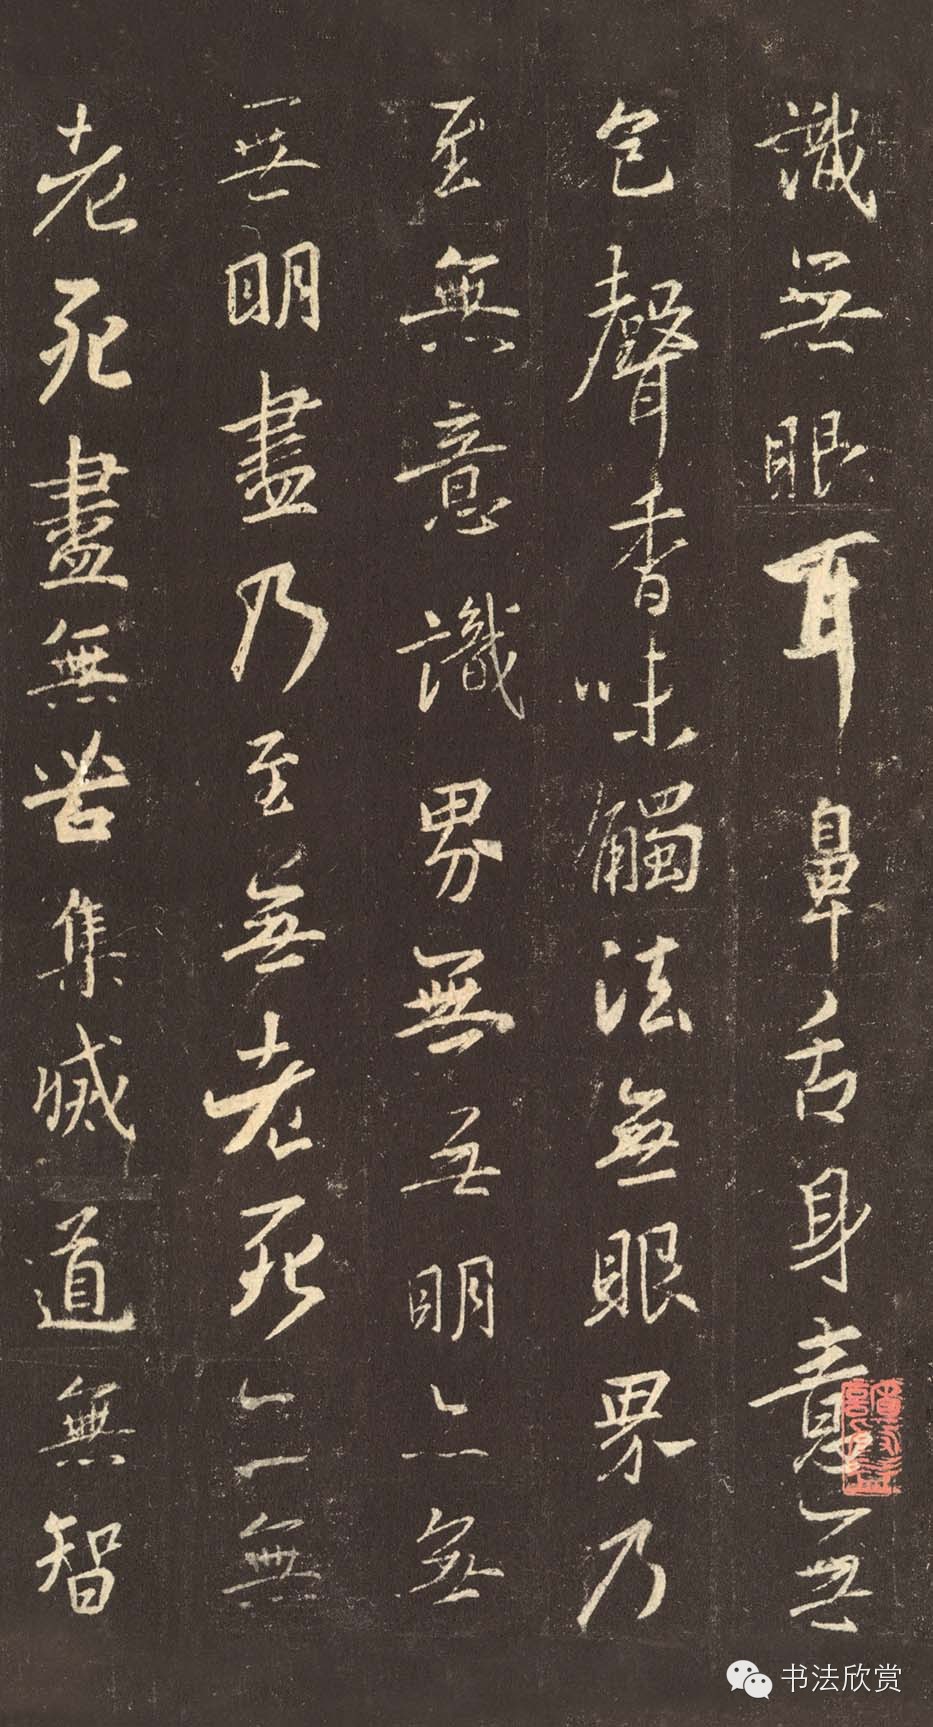 識無眼耳鼻舌身意無
色聲香味觸法無眼界乃
至無意識界無無明亦無
無明盡乃至無老死亦無
老死盡無苦集滅道無智
书法欣赏